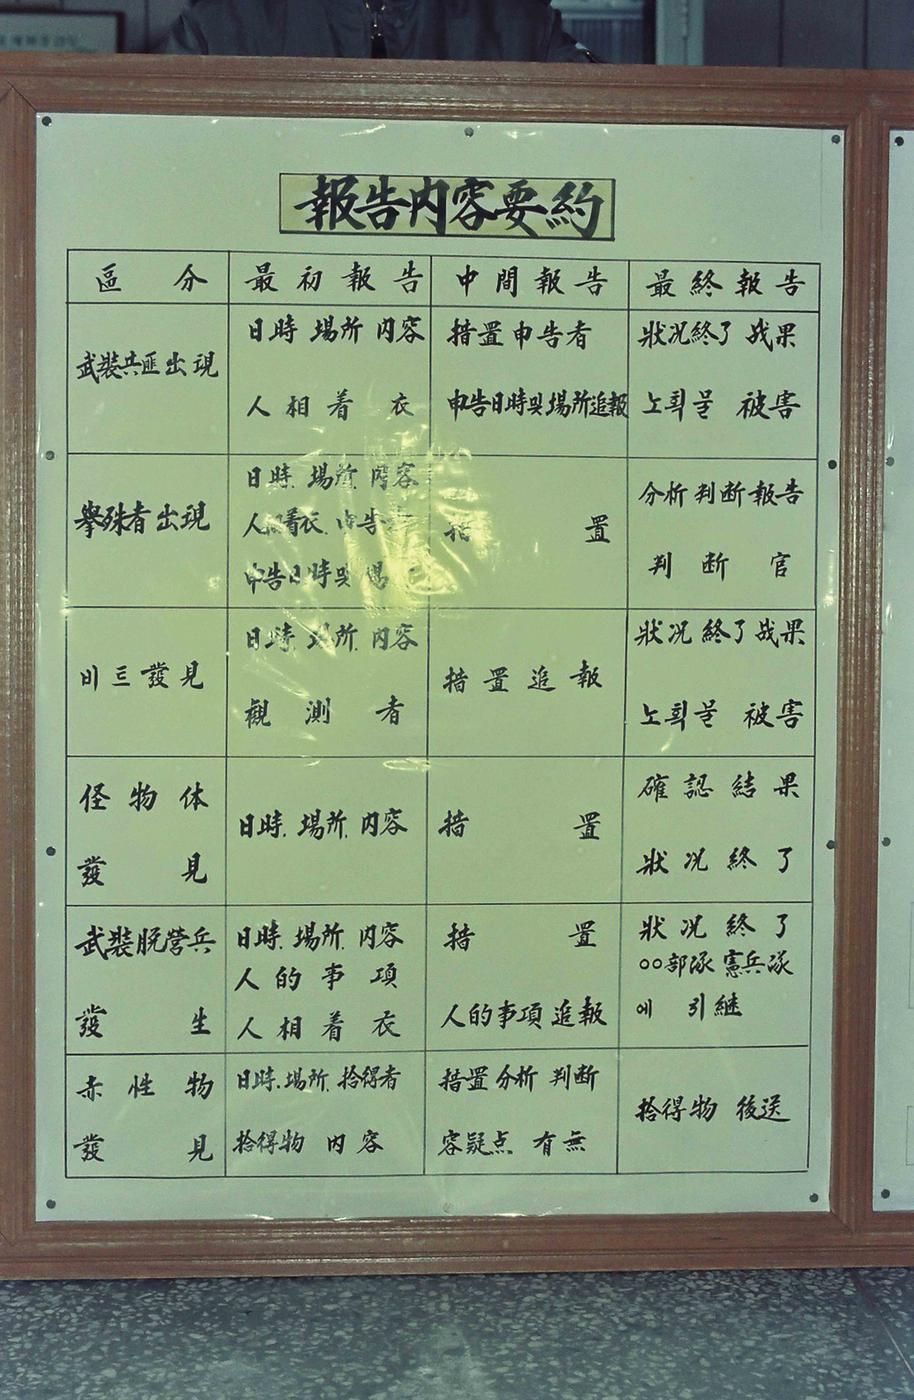 報告内容要約
區分 最初報告 中間報告 最終報告
武裝共匪出現
日時 場所 内容
人相着衣
措置申告者
申告日時및場所追報
狀況終了 成果
노획물 被害
擧殊者出現
日時. 場所. 内容
人相着衣. 申告者
申告日時및場
措置
分析判断報告
判断官
비三發見
日時. 場所. 内容
觀測者
措置追報
狀況終了成果
노획물 被害
怪物体
發見
日時. 場所. 内容
措置
確認結果
狀況終了
武裝脱營兵
發生
日時. 場所. 内容
人的事項
人相着衣
措置
人的事項追報
狀況終了
○○部隊 憲兵隊
에 引継
赤性物
發見
日時. 場所. 拾得者
拾得物 内容
措置分析 判断
容疑点 有無
拾得物 後送